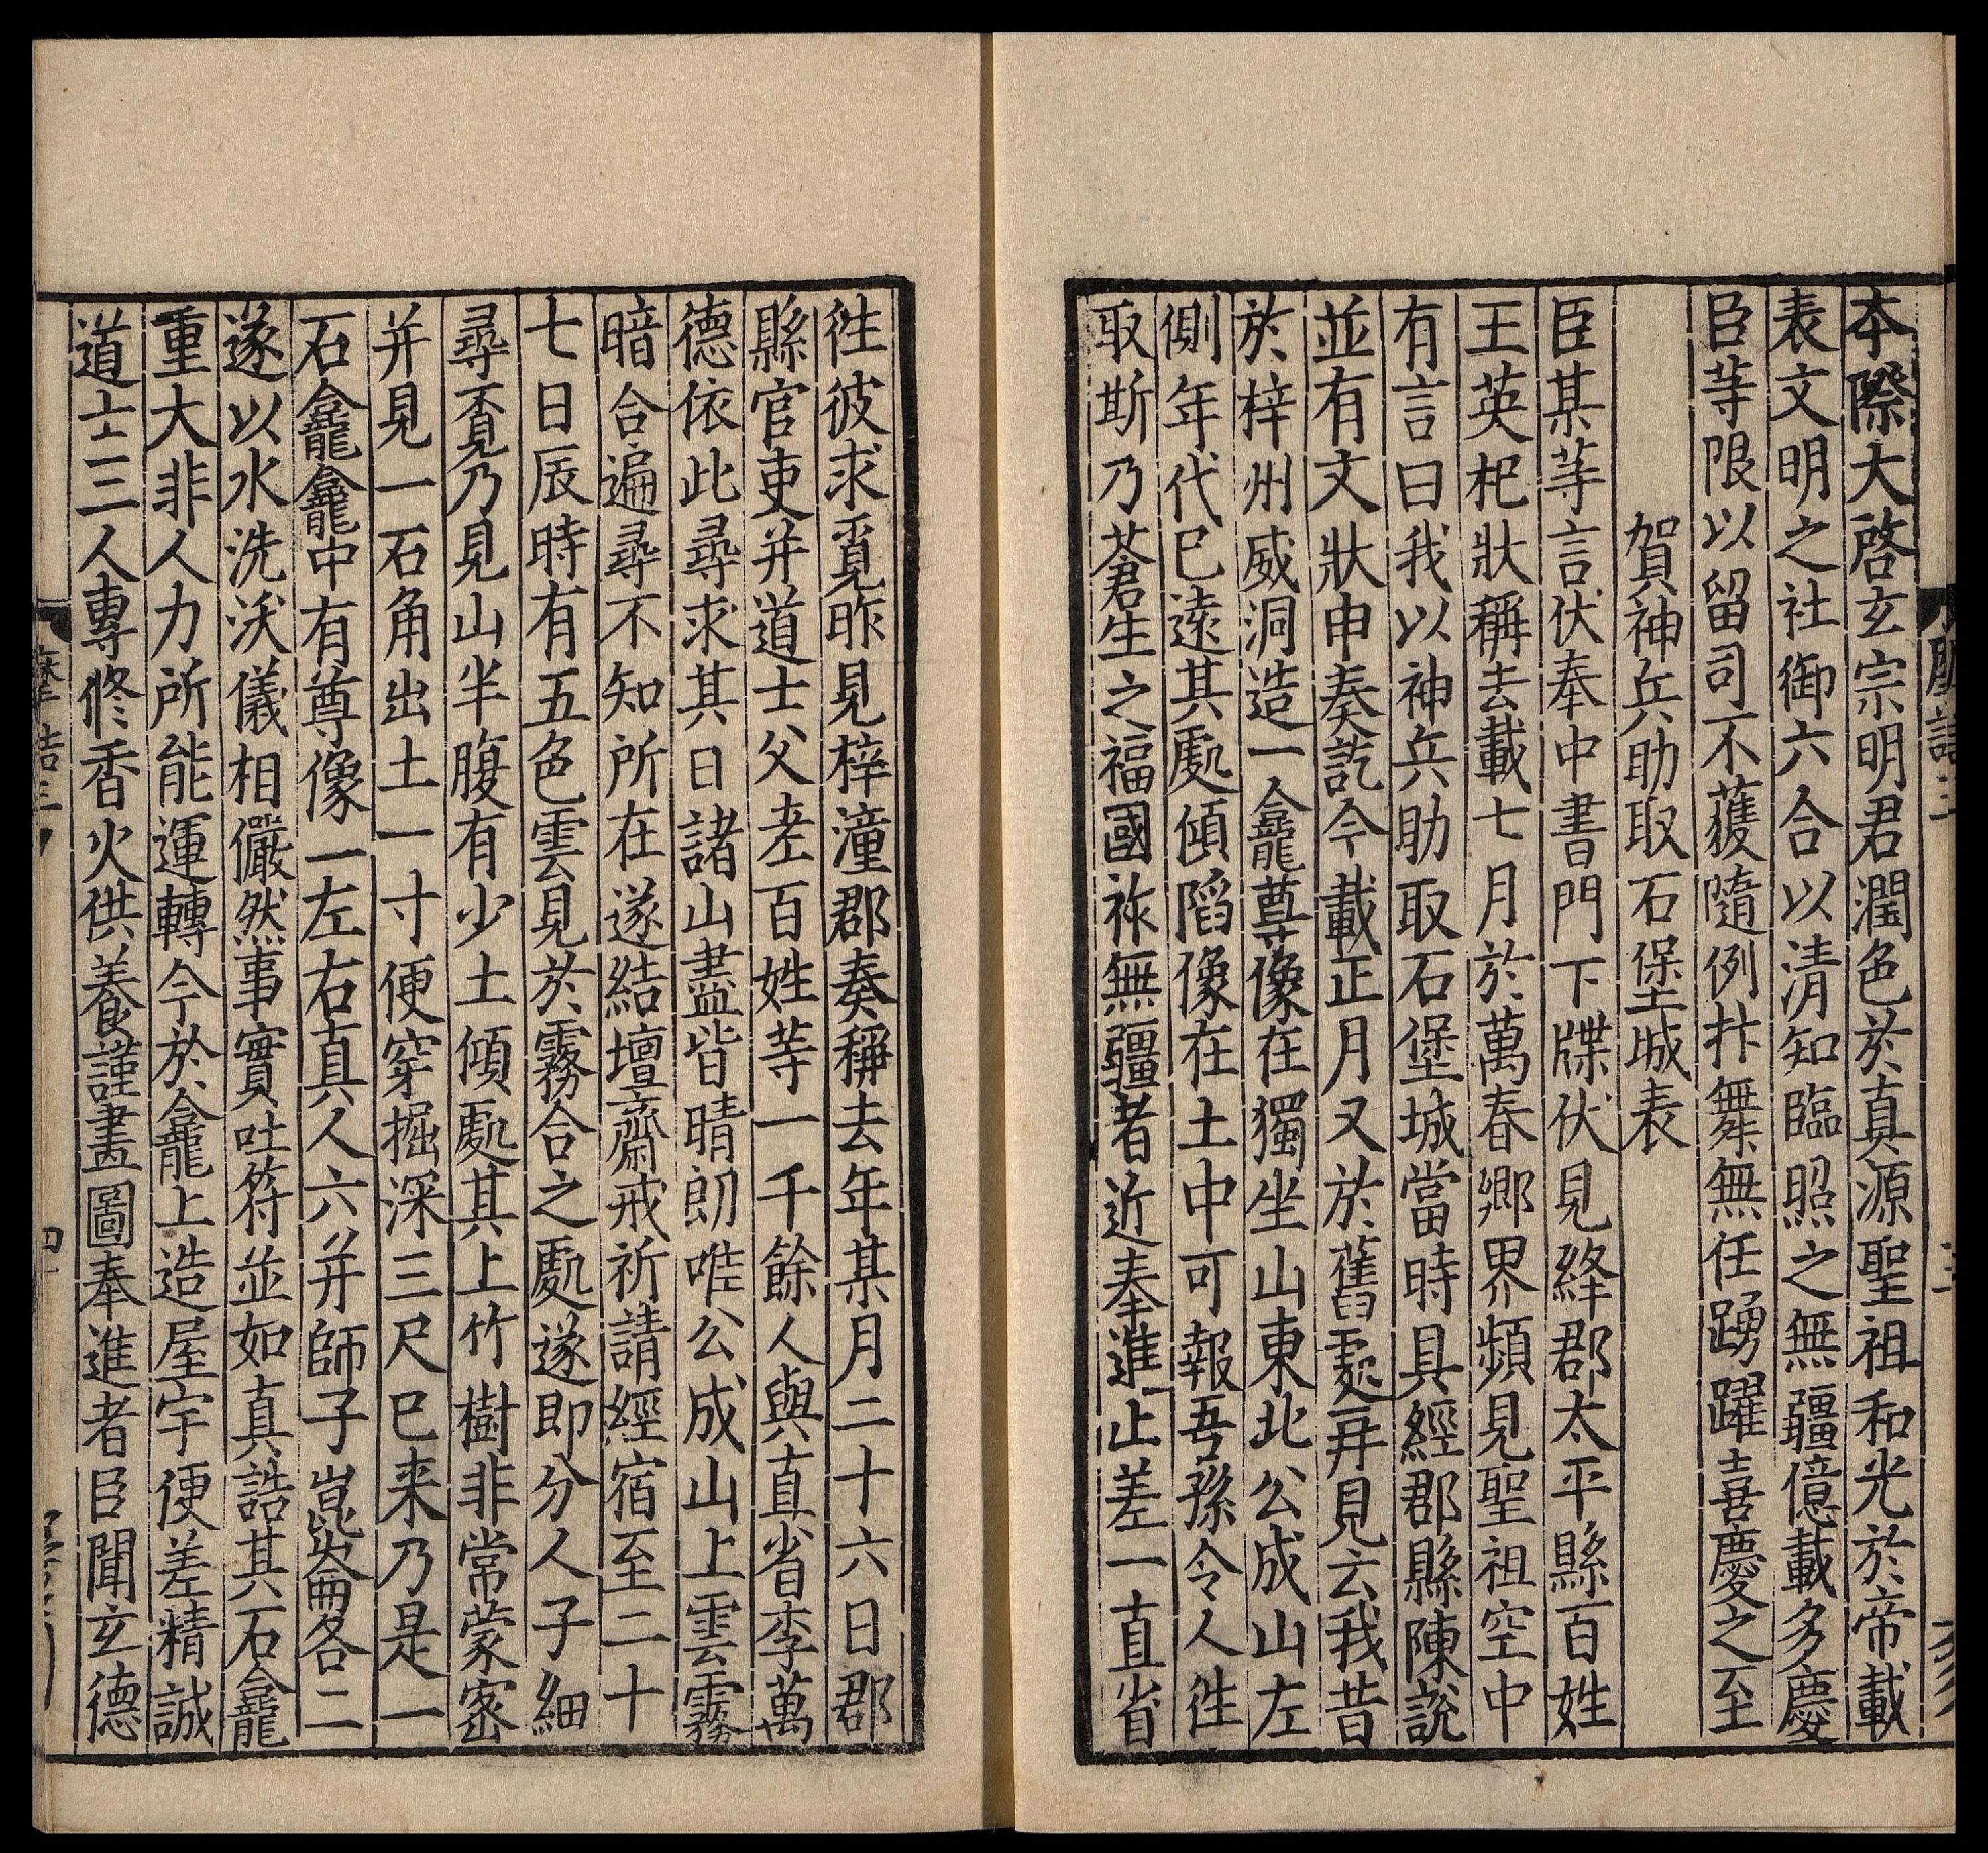 本際大啓玄宗明君潤色於真源聖祖和光於帝載
表文明之社御六合以清知臨照之無疆億載多慶
臣等限以留司不獲隨例抃舞無任踴躍喜慶之至
賀神兵助取石堡城表
臣某等言伏奉中書門下牒伏見絳郡太平縣百姓
王英杷狀稱去載七月於萬春鄉界頻見聖祖空中
有言曰我以神兵助取石堡城當時具經郡縣陳說
並有文狀申奏訖今載正月又於舊處再見云我昔
於梓州威洞造一龕尊像在獨坐山東北公成山左
側年代已遠其處傾陷像在土中可報吾孫令人徃
取斯乃蒼生之福國祚無疆者近奉進止差一直省
徃彼求覓昨見梓潼郡奏稱去年某月二十六日郡
縣官吏并道士父老百姓等一千餘人與直省李萬
德依此尋求其日諸山盡皆晴朗唯公成山上雲霧
暗合遍尋不知所在遂結壇齋戒祈請經宿至二十
七日辰時有五色雲見於霧合之處遂即分人子細
尋覔乃見山半腹有少土傾處其上竹樹非常蒙密
并見一石角出土一寸便穿掘深三尺已来乃是一
石龕龕中有尊像一左右真人六并師子崑崙各二
遂以水洗沃儀相儼然事實吐符並如真誥其石龕
重大非人力所能運轉今於龕上造屋宇便差精誠
道士三人專修香火供養謹畫圖奉進者臣聞玄德